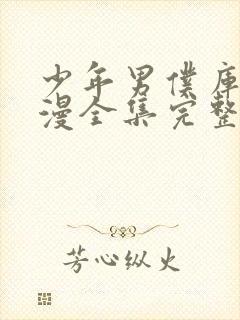 少年男僕库
漫全集完整
芳心纵火